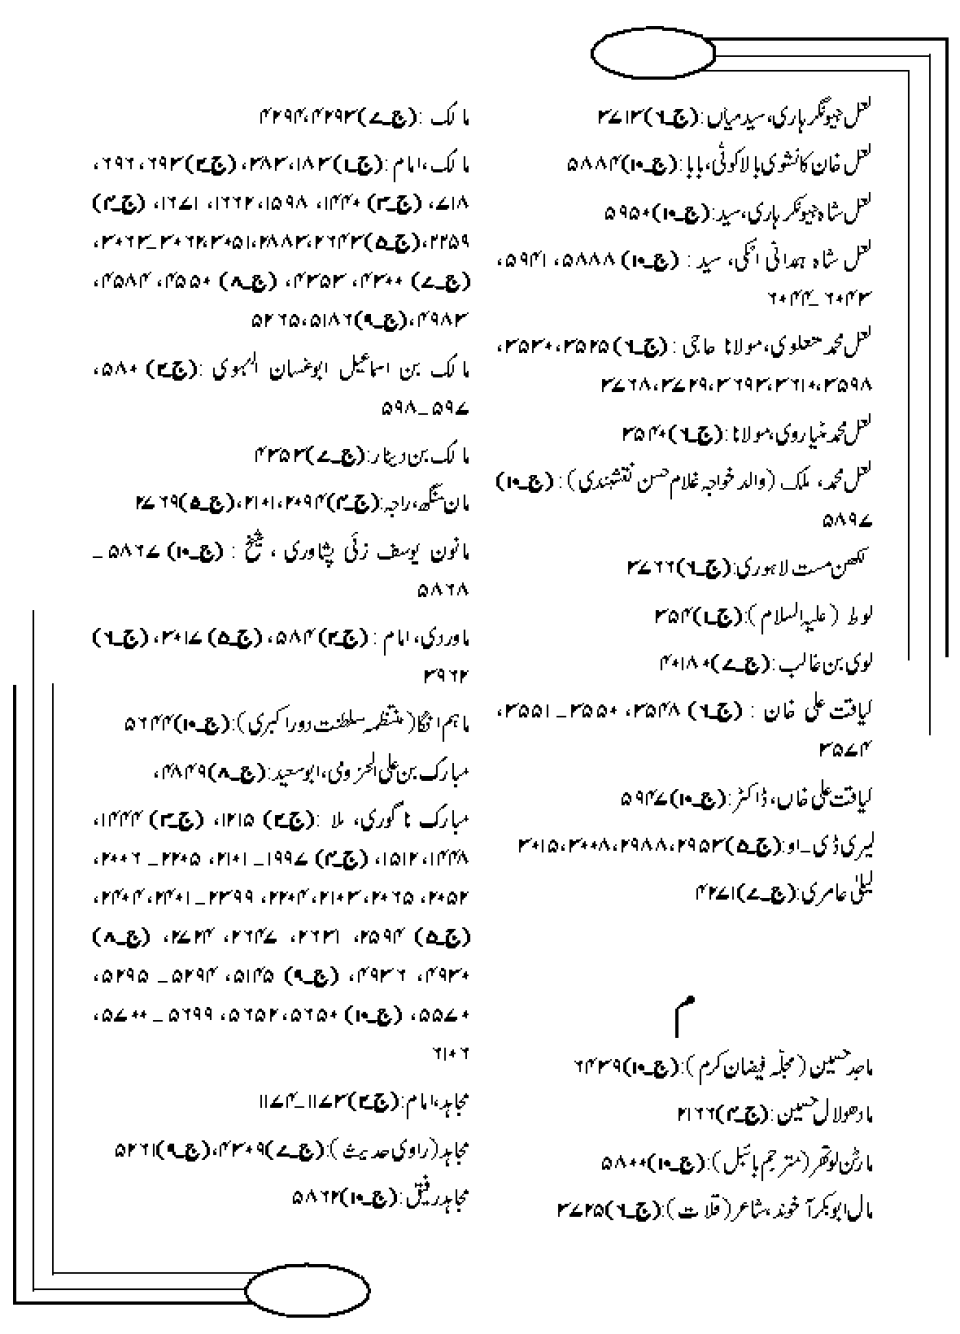 لعل جیونگر ہاری، سید میاں: (ج۔۶)۳۷۱۳
لعل خان کانشوی بالاکوٹی، بابا: (ج۔۱۰)۵۸۸۴
لعل شاہ جیونگر ہاری، سید: (ج۔۱۰)۵۹۵۰
لعل شاہ ہمدانی اٹکی، سید : (ج۔۱۰) ۵۸۸۸، ۵۹۴۱،
۶۰۴۳۔۶۰۴۴
لعل محمد متعلوی، مولانا حاجی : (ج۔۶) ۳۵۲۵، ۳۵۳۰،
۳۵۹۸، ۳۶۱۰، ۳۶۹۳، ۳۷۲۹، ۳۷۶۸
لعل محمد مٹیاروی، مولانا: (ج۔۶)۳۵۴۰
لعل محمد، ملک (والد خواجہ غلام حسن نقشبندی) : (ج۔۱۰)
۵۸۹۷
لکھن مست لاہوری: (ج۔۶)۳۷۶۶
لوط (علیہ السلام): (ج۔۱)۳۵۴
لوی بن غالب: (ج۔۷)۴۰۱۸۰
لیاقت علی خان : (ج۔۶) ۳۵۴۸، ۳۵۵۰۔۳۵۵۱،
۳۵۷۴
لیاقت علی خاں، ڈاکٹر: (ج۔۱۰)۵۹۴۷
لیری ڈی۔او: (ج۔۵)۲۹۵۳، ۲۹۸۸، ۳۰۰۸، ۳۰۱۵
لیلیٰ عامری: (ج۔۷)۴۲۷۱
م
ماجد حسین (مجلّہ فیضان کرم): (ج۔۱۰)۶۴۳۹
مادھولال حسین: (ج۔۴)۲۱۶۶
مارٹن لوتھر (مترجم بائبل): (ج۔۱۰)۵۸۰۰
مال ابوبکر آخوند، شاعر (قلات): (ج۔۶)۳۷۲۵
مالک : (ج۔۷)۴۲۹۳، ۴۲۹۴
مالک، امام: (ج۔۱) ۱۸۳، ۳۸۳، (ج۔۲)۶۹۳، ۶۹۶،
۷۱۸، (ج۔۳) ۱۴۴۰، ۱۵۹۸، ۱۶۶۲، ۱۶۷۱، (ج۔۴)
۲۲۵۹، (ج۔۵)۲۶۴۳، ۲۸۸۳، ۳۰۵۱، ۳۰۶۲۔۳۰۶۳،
(ج۔۷) ۴۳۰۰، ۴۳۵۳، (ج۔۸) ۴۵۵۰، ۴۵۸۴،
۴۹۸۳، (ج۔۹)۵۱۸۶، ۵۲۶۵
مالک بن اسماعیل ابوغسان الہموی : (ج۔۲) ۵۸۰،
۵۹۷۔۵۹۸
مالک بن دینار: (ج۔۷)۴۳۵۳
مان سنگھ، راجہ: (ج۔۴)۲۰۹۴، ۲۱۰۱، (ج۔۵)۲۷۶۹
مانون یوسف زئی پشاوری ، شیخ : (ج۔۱۰) ۵۸۶۷۔
۵۸۶۸
ماوردی، امام : (ج۔۲) ۵۸۴، (ج۔۵) ۳۰۱۷، (ج۔۶)
۳۹۶۲
ماہم انگا (منتظمہ سلطنت دور اکبری): (ج۔۱۰)۵۶۴۴
مبارک بن علی المخزومی، ابوسعید: (ج۔۸)۴۸۴۹،
مبارک ناگوری، ملا : (ج۔۲) ۱۲۱۵، (ج۔۳) ۱۴۴۴،
۱۴۴۸، ۱۵۱۲، (ج۔۴) ۱۹۹۷۔۲۱۰۱، ۲۲۰۵۔۲۰۰۶،
۲۰۵۲، ۲۰۶۵، ۲۱۰۳، ۲۲۰۴، ۲۳۹۹۔۲۴۰۱، ۲۴۰۴،
(ج۔۵) ۲۵۹۴، ۲۶۳۱، ۲۶۴۷، ۲۷۲۴، (ج۔۸)
۴۹۳۰، ۴۹۳۶، (ج۔۹) ۵۱۴۵، ۵۲۹۴۔۵۲۹۵،
۵۵۷۰، (ج۔۱۰) ۵۶۵۰، ۵۶۵۲، ۵۶۹۹۔۵۷۰۰،
۶۱۰۶
مجاہد، امام: (ج۔۲)۱۱۷۳۔۱۱۷۴
مجاہد (راوی حدیث): (ج۔۷)۴۳۰۹، (ج۔۹)۵۲۶۱
مجاہد رفیق: (ج۔۱۰)۵۸۶۲